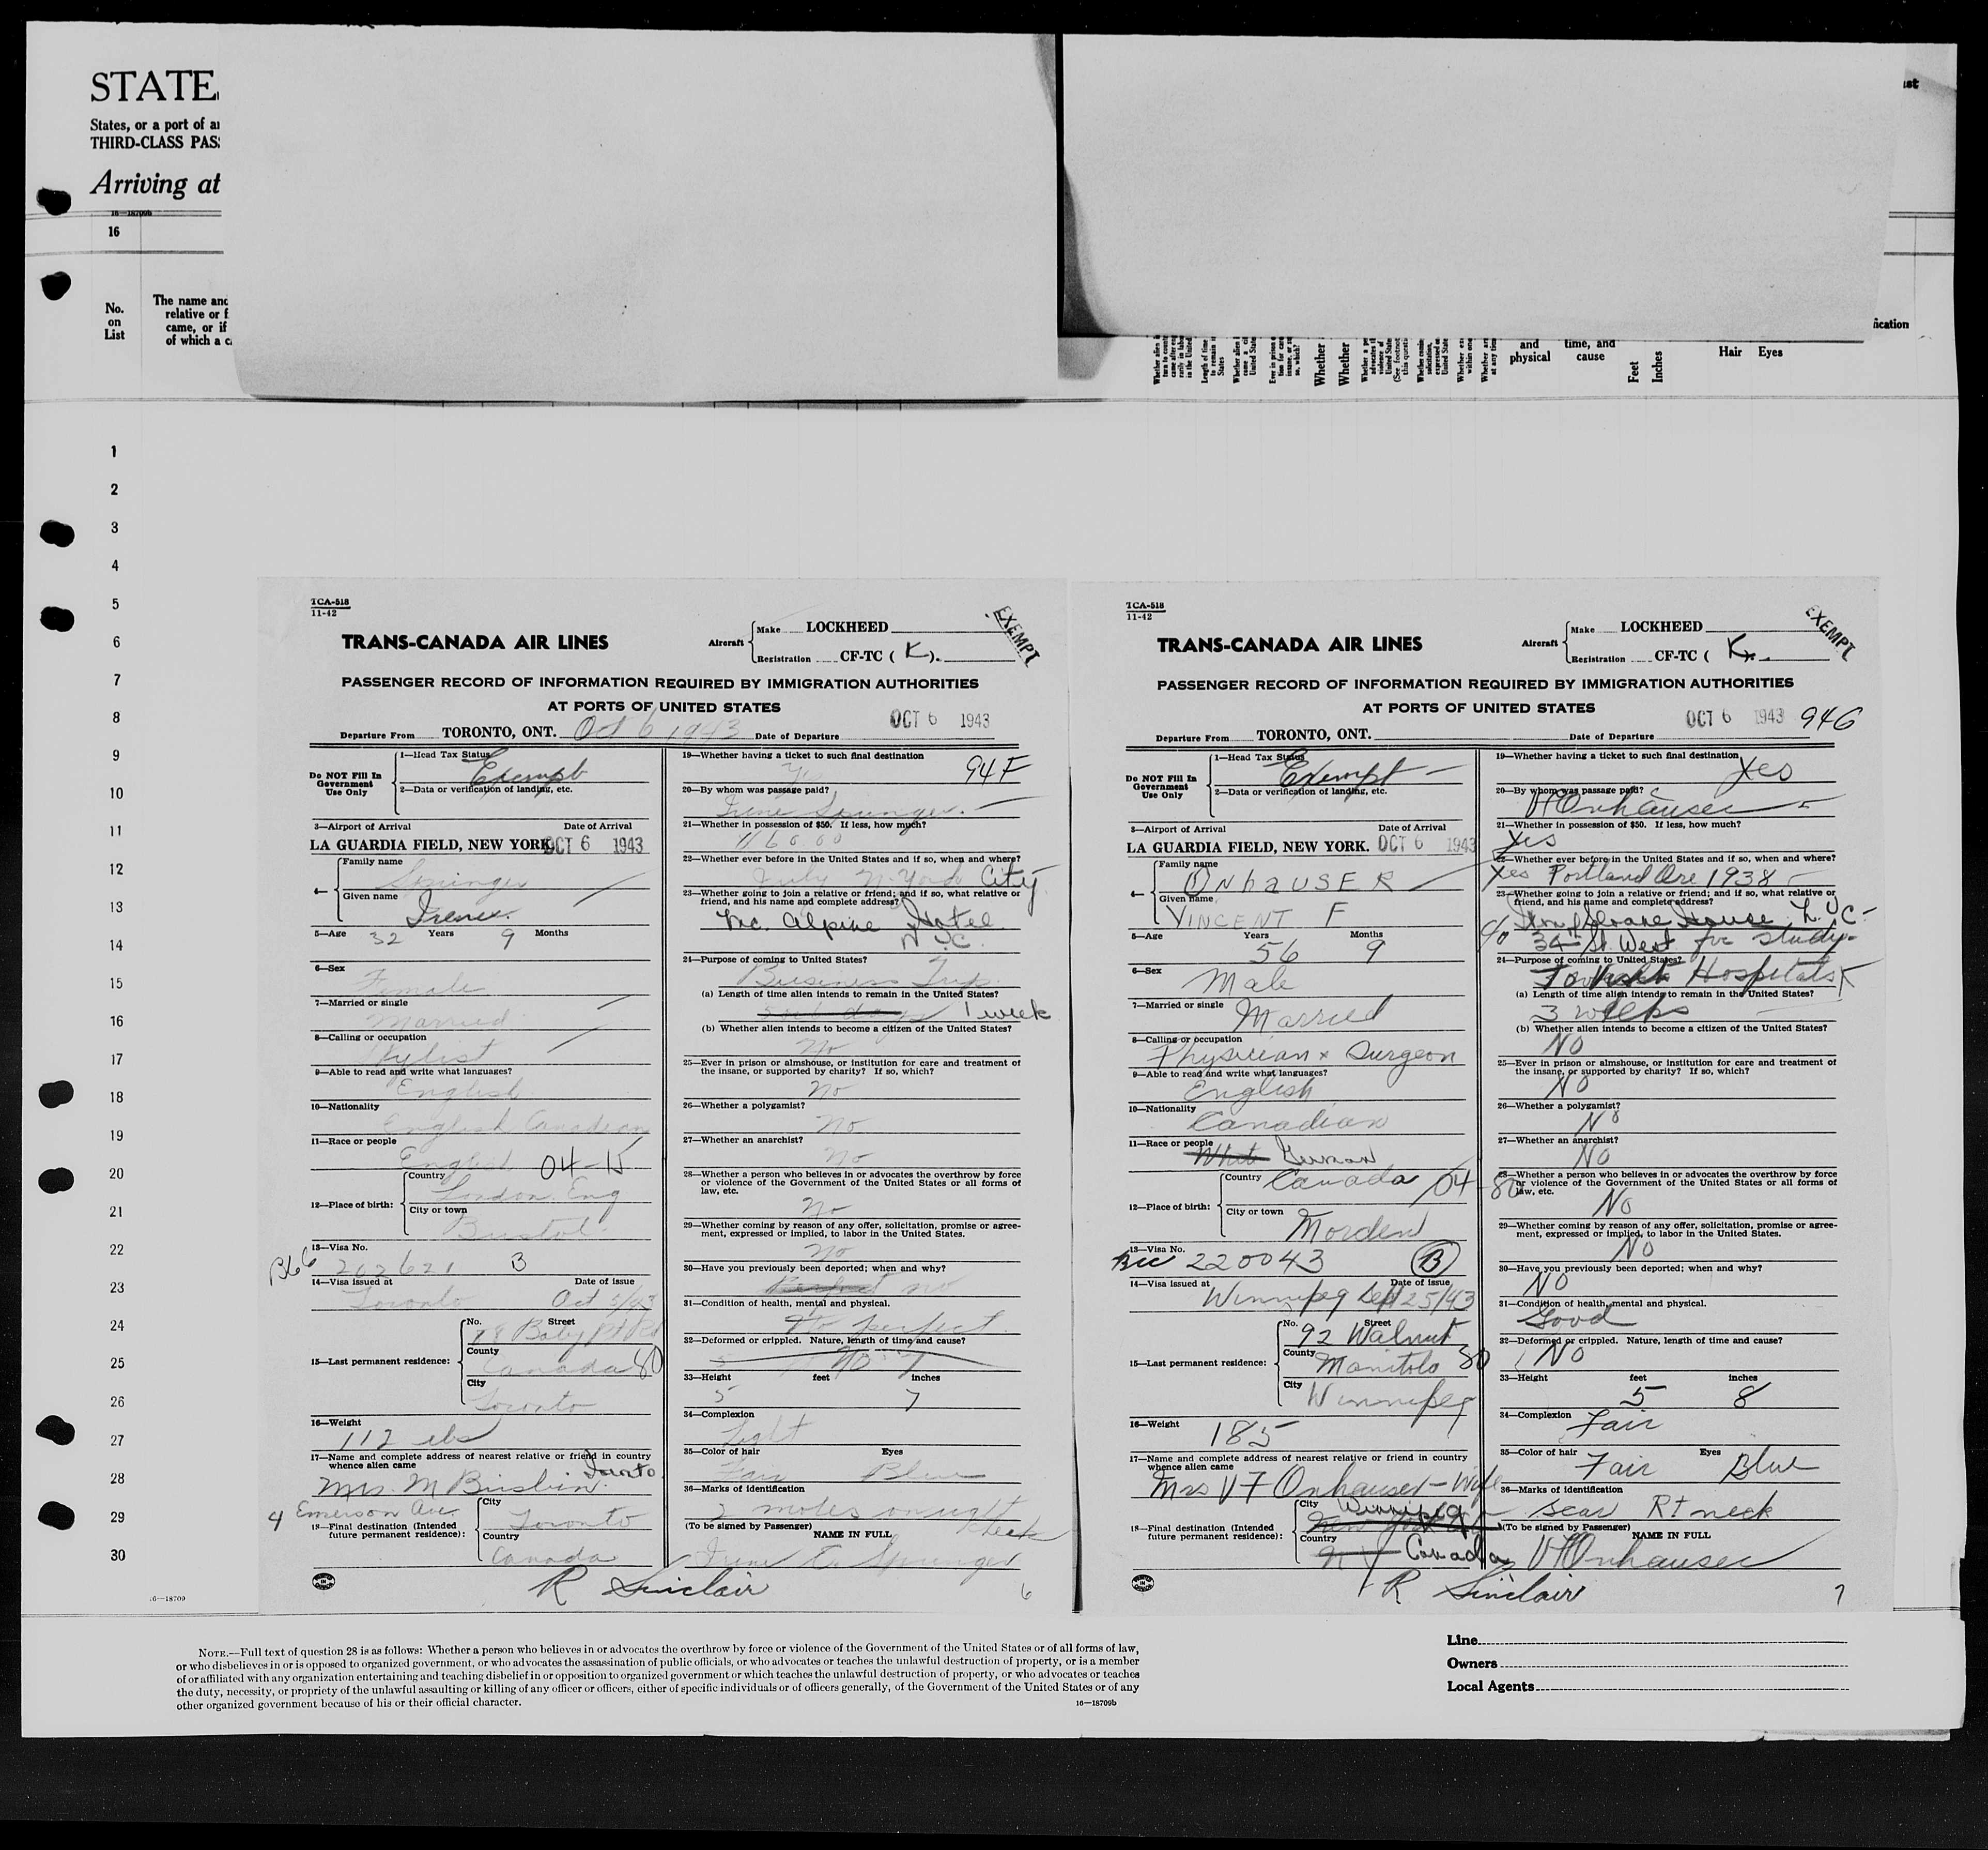 STATE
States, or a port of
THIRD-CLASS
Arriving at
16—18709b
16
No.
on
List
The name and
relative or f
came, or if
of which a
and
physical
time, and
cause
Feet
Inches
Hair Eyes
Whether
Whether
1
2
3
4
5
6
7
8
9
10
11
12
13
14
15
16
17
18
19
20
21
22
23
24
25
26
27
28
29
30
16—18709
TCA-518
11-42
TRANS-CANADA AIR LINES
Aircraft
Make LOCKHEED
Registration CF-TC ( K ).
EXEMPT
PASSENGER RECORD OF INFORMATION REQUIRED BY IMMIGRATION AUTHORITIES
AT PORTS OF UNITED STATES
OCT 6 1943
Departure From TORONTO, ONT. Oct 6 1943 Date of Departure
Do NOT Fill In
Government
Use Only
1—Head Tax Status
Exempt
2—Data or verification of landing, etc.
3—Airport of Arrival Date of Arrival
LA GUARDIA FIELD, NEW YORK. OCT 6 1943
4—
Family name
Springer
Given name
Irene.
5—Age 32 Years 9 Months
6—Sex
Female
7—Married or single
Married
8—Calling or occupation
Stylist
9—Able to read and write what languages?
English
10—Nationality
English Canadian
11—Race or people
English 04-15
12—Place of birth:
Country
London Eng
City or town
Bristol
13—Visa No.
202621 B
14—Visa issued at Date of issue
Toronto Oct 5/43
15—Last permanent residence:
No. Street
78 Baby Pt Rd
County
Canada 80
City
Toronto
16—Weight
112 lbs
17—Name and complete address of nearest relative or friend in country
whence alien came
Mrs. M Brisbin Toronto
4 Emerson Ave.
18—Final destination (Intended
future permanent residence):
City
Toronto
Country
Canada
R Sinclair
19—Whether having a ticket to such final destination
Yes 94F
20—By whom was passage paid?
Irene Springer.
21—Whether in possession of $50. If less, how much?
22—Whether ever before in the United States and if so, when and where?
July N. York City
23—Whether going to join a relative or friend; and if so, what relative or
friend, and his name and complete address?
Mc. Alpine Hotel
N.Y.C.
24—Purpose of coming to United States?
Business Trip.
(a) Length of time alien intends to remain in the United States?
1 week
(b) Whether alien intends to become a citizen of the United States?
No
25—Ever in prison or almshouse, or institution for care and treatment of
the insane, or supported by charity? If so, which?
No
26—Whether a polygamist?
No
27—Whether an anarchist?
No
28—Whether a person who believes in or advocates the overthrow by force
or violence of the Government of the United States or all forms of
law, etc.
No
29—Whether coming by reason of any offer, solicitation, promise or agree-
ment, expressed or implied, to labor in the United States.
No
30—Have you previously been deported; when and why?
Perfect no
31—Condition of health, mental and physical.
perfect
32—Deformed or crippled. Nature, length of time and cause?
No
33—Height feet inches
5 7
34—Complexion
Light
35—Color of hair Eyes
Fair Blue
36—Marks of identification
2 moles on right cheek
(To be signed by Passenger) NAME IN FULL
Irene E. Springer
6
TCA-518
11-42
TRANS-CANADA AIR LINES
Aircraft
Make LOCKHEED
Registration CF-TC ( K
EXEMPT
PASSENGER RECORD OF INFORMATION REQUIRED BY IMMIGRATION AUTHORITIES
AT PORTS OF UNITED STATES
OCT 6 1943 94G
Departure From TORONTO, ONT. Date of Departure
Do NOT Fill In
Government
Use Only
1—Head Tax Status
Exempt
2—Data or verification of landing, etc.
3—Airport of Arrival Date of Arrival
LA GUARDIA FIELD, NEW YORK. OCT 6 1943
4—
Family name
ONHAUSER
Given name
VINCENT F
5—Age Years Months
56 9
6—Sex
Male
7—Married or single
Married
8—Calling or occupation
Physician & Surgeon
9—Able to read and write what languages?
English
10—Nationality
Canadian
11—Race or people
White German
12—Place of birth:
Country Canada 04-80
City or town
Morden
13—Visa No.
220043 B
14—Visa issued at Date of issue
Winnipeg Sept 25/43
15—Last permanent residence:
No. Street
92 Walnut
County
Manitoba 80
City
Winnipeg
16—Weight
185
17—Name and complete address of nearest relative or friend in country
whence alien came
Mrs V F Onhauser - Wife
18—Final destination (Intended
future permanent residence):
City Winnipeg
New York
Country
N Y Canada
R Sinclair
19—Whether having a ticket to such final destination
Yes
20—By whom was passage paid?
VFOnhauser
21—Whether in possession of $50. If less, how much?
Yes
22—Whether ever before in the United States and if so, when and where?
Yes Portland Ore 1938
23—Whether going to join a relative or friend; and if so, what relative or
friend, and his name and complete address?
c/o Wm Sloane House N.Y.C.
34th St. West for study
24—Purpose of coming to United States?
To Visit Hospitals
(a) Length of time alien intends to remain in the United States?
3 weeks
(b) Whether alien intends to become a citizen of the United States?
NO
25—Ever in prison or almshouse, or institution for care and treatment of
the insane, or supported by charity? If so, which?
NO
26—Whether a polygamist?
NO
27—Whether an anarchist?
NO
28—Whether a person who believes in or advocates the overthrow by force
or violence of the Government of the United States or all forms of
law, etc.
No
29—Whether coming by reason of any offer, solicitation, promise or agree-
ment, expressed or implied, to labor in the United States.
No
30—Have you previously been deported; when and why?
NO
31—Condition of health, mental and physical.
Good
32—Deformed or crippled. Nature, length of time and cause?
No
33—Height feet inches
5 8
34—Complexion
Fair
35—Color of hair Eyes
Fair Blue
36—Marks of identification
scar Rt neck
(To be signed by Passenger) NAME IN FULL
VFOnhauser
7
NOTE.—Full text of question 28 is as follows: Whether a person who believes in or advocates the overthrow by force or violence of the Government of the United States or of all forms of law,
or who disbelieves in or is opposed to organized government, or who advocates the assassination of public officials, or who advocates or teaches the unlawful destruction of property, or is a member
of or affiliated with any organization entertaining and teaching disbelief in or opposition to organized government or which teaches the unlawful destruction of property, or who advocates or teaches
the duty, necessity, or propriety of the unlawful assaulting or killing of any officer or officers, either of specific individuals or of officers generally, of the Government of the United States or of any
other organized government because of his or their official character.
16—18709b
Line
Owners
Local Agents